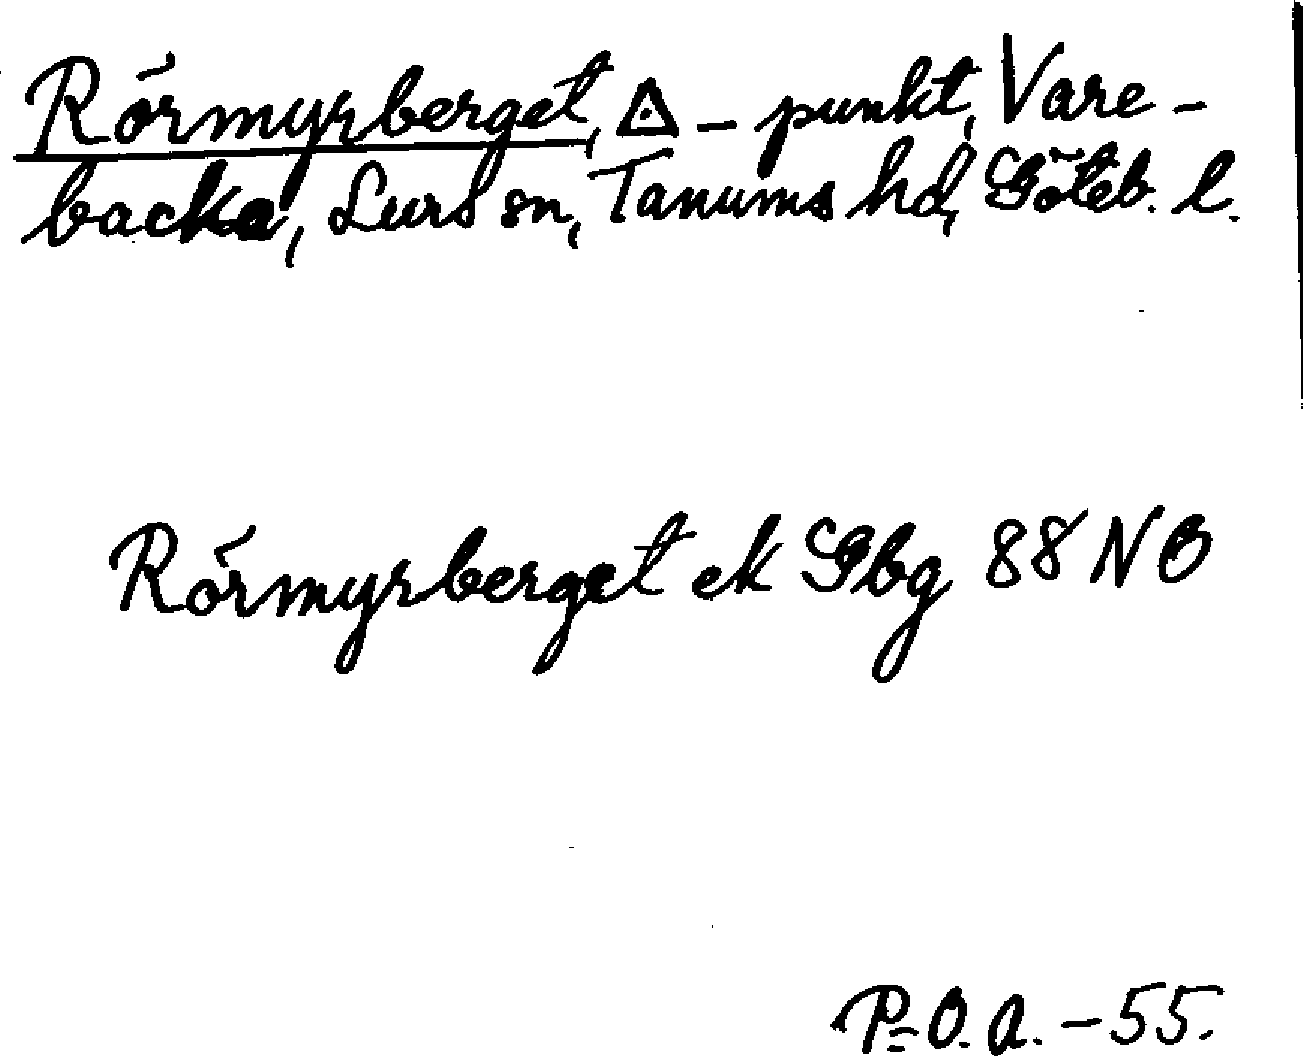 Rörmyrberget, △ - punkt, Vare-
backa, Lurs sn, Tanums hd, Göteb. l.
Rörmyrberget ek Gbg 88 NO
P-O. A. - 55.